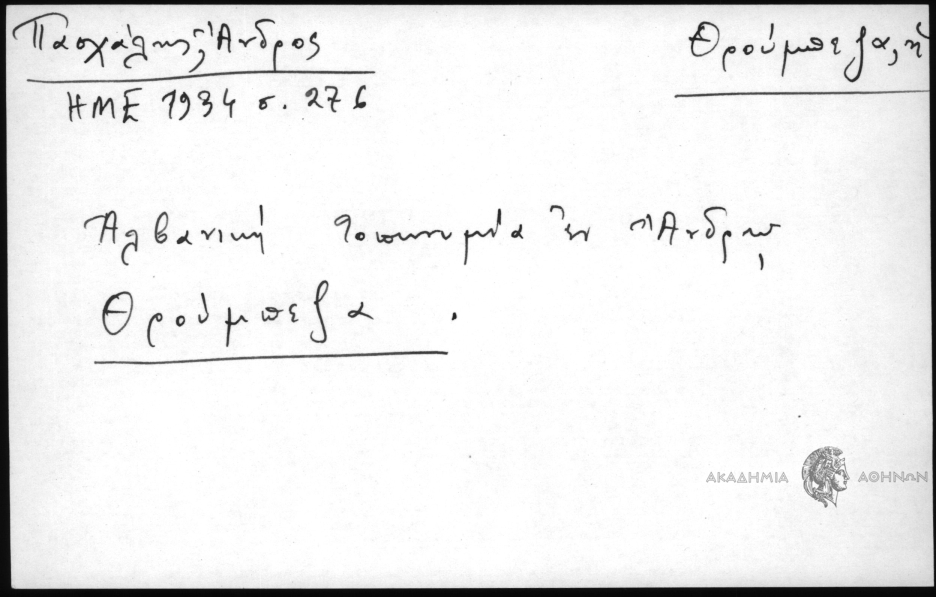 Πασχάλης, Ἄνδρος
Θρούμπεζα, ἡ
ΗΜΕ 1934 σ. 276
Ἀλβανική τοπωνυμία ἐν Ἄνδρῳ
Θρούμπεζα .
ΑΚΑΔΗΜΙΑ ΑΘΗΝΩΝ